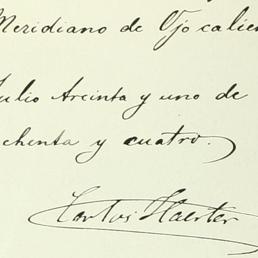 Meridiano de Ojo calien
ulio treinta y uno de
chenta y cuatro.
Carlos Haerter